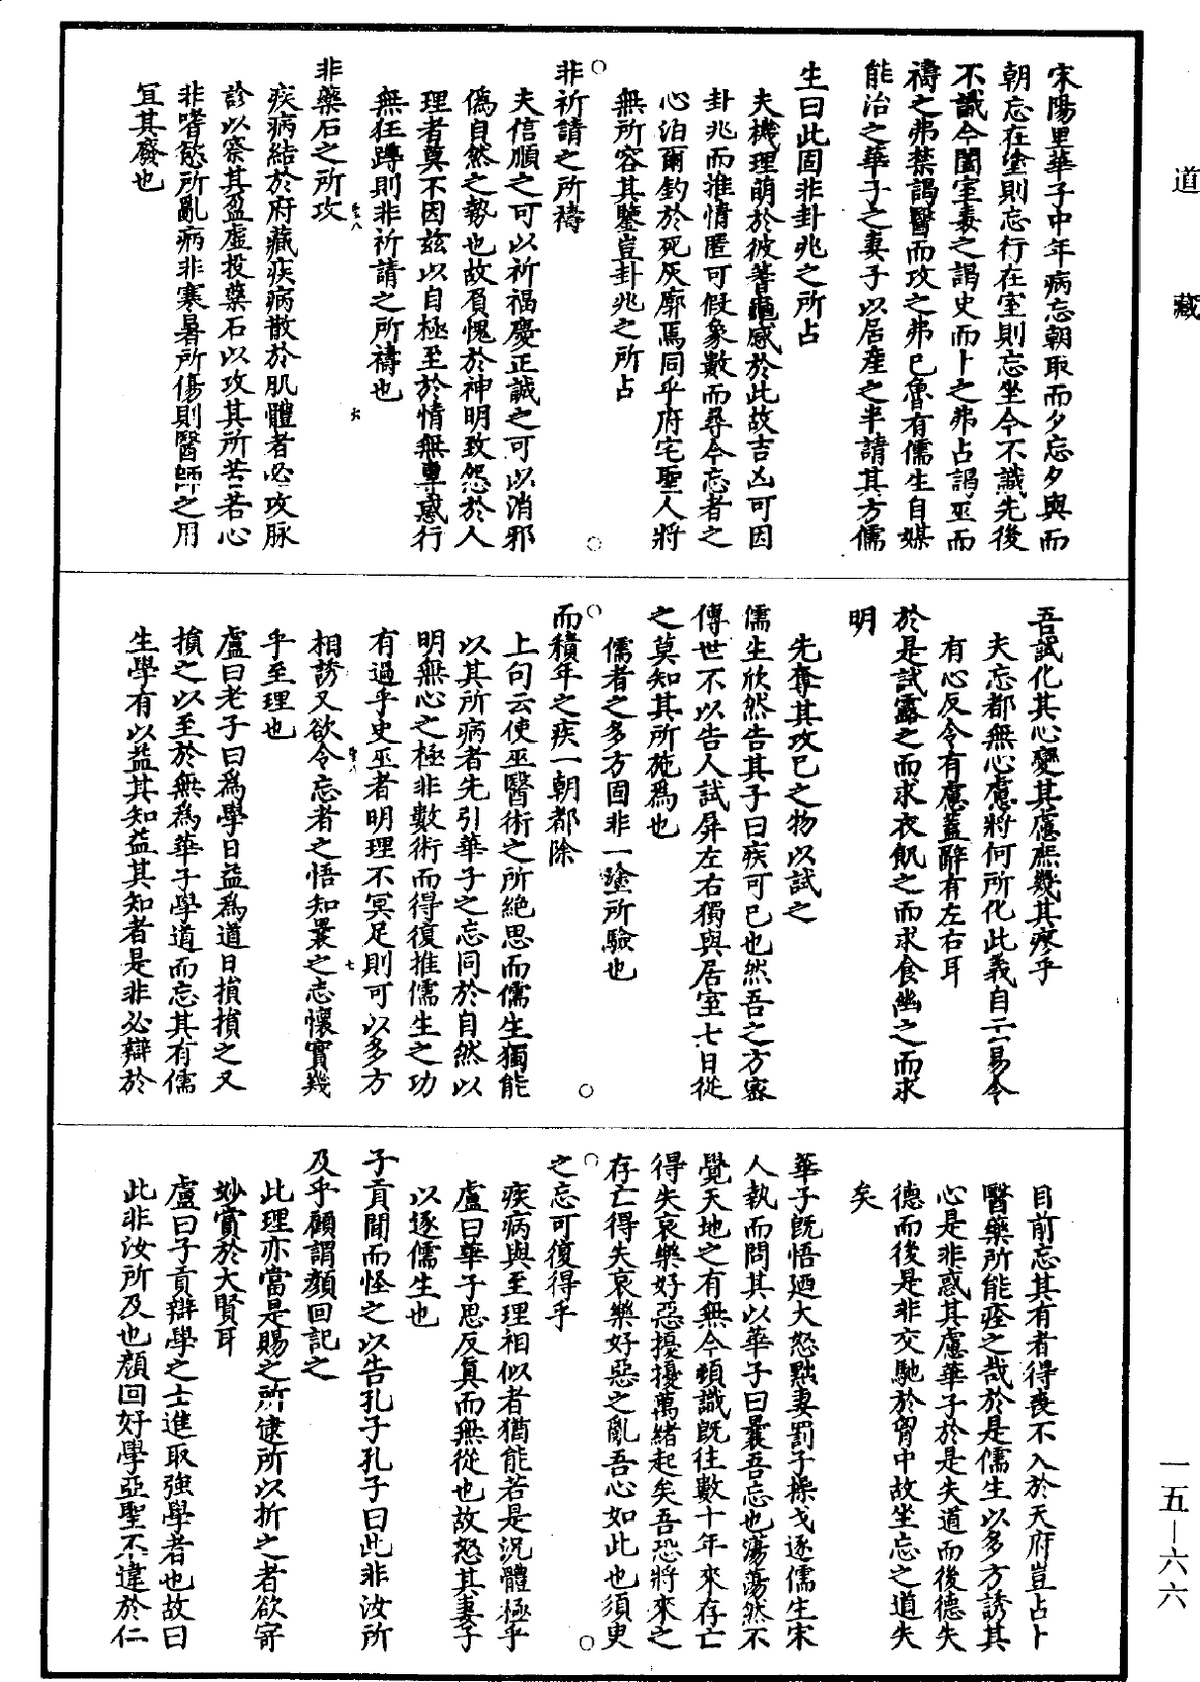 道藏
宋陽里華子中年病忘朝取而夕忘夕與而
朝忘在塗則忘行在室則忘坐今不識先後
不識今闔室毒之謁史而卜之弗占謁巫而
禱之弗禁謁醫而攻之弗已魯有儒生自媒
能治之華子之妻子以居產之半請其方儒
生曰此固非卦兆之所占
夫機理萌於彼蓍龜感於此故吉凶可因
卦兆而推情匿可假象數而尋今忘者之
心泊爾鈞於死灰廓焉同乎府宅聖人將
無所容其鑒豈卦兆之所占
非祈請之所禱
夫信順之可以祈福慶正誠之可以消邪
偽自然之勢也故負愧於神明致怨於人
理者莫不因茲以自極至於情無專惑行
無狂躁則非祈請之所禱也
非藥石之所攻
疾病結於府藏疾病散於肌體者必攻脉
診以察其盈虛投藥石以攻其所苦若心
非嗜慾所亂病非寒暑所傷則醫師之用
宜其廢也
吾試化其心變其慮庶幾其瘳乎
夫忘都無心慮將何所化此義自云易令
有心反令有慮蓋辭有左右耳
於是試露之而求衣飢之而求食幽之而求
明
先奪其攻已之物以試之
儒生欣然告其子曰疾可已也然吾之方密
傳世不以告人試屏左右獨與居室七日從
之莫知其所施為也
儒者之多方固非一塗所驗也
而積年之疾一朝都除
上句云使巫醫術之所絕思而儒生獨能
以其所病者先引華子之忘同於自然以
明無心之極非數術而得復推儒生之功
有過乎史巫者明理不冥足則可以多方
相誘又欲令忘者之悟知曩之忘懷實幾
乎至理也
盧曰老子曰為學日益為道日損損之又
損之以至於無為華子學道而忘其有儒
生學有以益其知益其知者是非必辯於
目前忘其有者得喪不入於天府豈占卜
醫藥所能痊之哉於是儒生以多方誘其
心是非惑其慮華子於是失道而後德失
德而後是非交馳於胷中故坐忘之道失
矣
華子既悟廼大怒黜妻罰子操戈逐儒生宋
人執而問其以華子曰曩吾忘也蕩蕩然不
覺天地之有無今頓識既往數十年來存亡
得失哀樂好惡擾擾萬緒起矣吾恐將來之
存亡得失哀樂好惡之亂吾心如此也須臾
之忘可復得乎
疾病與至理相似者猶能若是況體極乎
盧曰華子思反真而無從也故怒其妻子
以逐儒生也
子貢聞而怪之以告孔子孔子曰此非汝所
及乎顧謂顏回記之
此理亦當是賜之所逮所以抑之者欲寄
妙賞於大賢耳
盧曰子貢辯學之士進取強學者也故曰
此非汝所及也顏回好學亞聖不違於仁
一五—六六